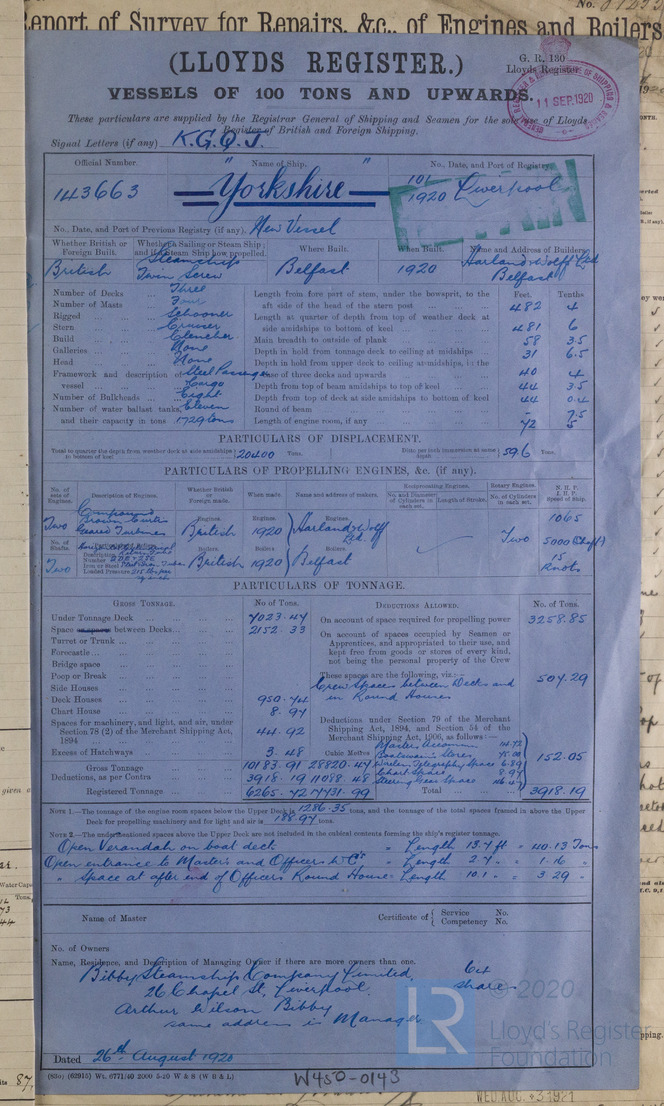 No.
Report of Survey for Repairs, &c., of Engines and Boilers
(LLOYDS REGISTER.)
G. R. 130
Lloyds Register
VESSELS OF 100 TONS AND UPWARDS.
11 SEP. 1920
These particulars are supplied by the Registrar General of Shipping and Seamen for the sole use of Lloyds
Register of British and Foreign Shipping.
Signal Letters (if any) K.G.Q.J.
Official Number. Name of Ship. No., Date, and Port of Registry.
143663 "Yorkshire" 101 1920 Liverpool
No., Date, and Port of Previous Registry (if any). New Vessel
Whether British or Foreign Built. Whether a Sailing or Steam Ship; and if a Steam Ship how propelled. Where Built. When Built. Name and Address of Builders.
British Steamship Twin Screw Belfast 1920 Harland & Wolff Ltd Belfast
Number of Decks ... Three
Number of Masts ... Four
Rigged ... Schooner
Stern ... Cruiser
Build ... Clencher
Galleries ... None
Head ... None
Framework and description of vessel ... Steel Passenger Cargo
Number of Bulkheads ... Eight
Number of water ballast tanks, Eleven
and their capacity in tons 1729 tons
Feet. Tenths
Length from fore part of stem, under the bowsprit, to the aft side of the head of the stern post 482 4
Length at quarter of depth from top of weather deck at side amidships to bottom of keel 481 6
Main breadth to outside of plank 58 3.5
Depth in hold from tonnage deck to ceiling at midships 31 6.5
Depth in hold from upper deck to ceiling at midships, in the case of three decks and upwards 40 4
Depth from top of beam amidships to top of keel 44 3.5
Depth from top of deck at side amidships to bottom of keel 44 0.4
Round of beam - 7.5
Length of engine room, if any 72 5
PARTICULARS OF DISPLACEMENT.
Total to quarter the depth from weather deck at side amidships to bottom of keel 20400 Tons. Ditto per inch immersion at same depth 59.6 Tons.
PARTICULARS OF PROPELLING ENGINES, &c. (if any).
No. of sets of Engines. Description of Engines. Whether British or Foreign made. When made. Name and address of makers. Reciprocating Engines. No. and Diameter of Cylinders in each set. Length of Stroke. Rotary Engines. No. of Cylinders in each set. N.H.P. I.H.P. Speed of Ship.
Two Compound Brown Curtis Geared Turbines Engines. British Engines 1920 Engines. Harland & Wolff Ltd. Belfast Two 1065 5000 (Shaft) 15 Knots
No. of Shafts. Description Number Iron or Steel Loaded Pressure 215 lbs per
Two Boilers British Boilers 1920 Boilers
PARTICULARS OF TONNAGE.
GROSS TONNAGE. No of Tons.
Under Tonnage Deck 7023.47
Space between Decks 2152.33
Turret or Trunk
Forecastle
Bridge space
Poop or Break
Side Houses
Deck Houses 950.74
Chart House 8.97
Spaces for machinery, and light, and air, under Section 78 (2) of the Merchant Shipping Act, 1894 44.92
Excess of Hatchways 3.48
Cubic Metres
Gross Tonnage 10183.91 28820.47
Deductions, as per Contra 3918.19 11088.48
Registered Tonnage 6265.72 17731.99
DEDUCTIONS ALLOWED. No. of Tons.
On account of space required for propelling power 3258.85
On account of spaces occupied by Seamen or Apprentices, and appropriated to their use, and kept free from goods or stores of every kind, not being the personal property of the Crew
These spaces are the following, viz.:— 507.29
Crew Spaces between Decks and in Round Houses
Deductions under Section 79 of the Merchant Shipping Act, 1894, and Section 54 of the Merchant Shipping Act, 1906, as follows:—
Masters Accommn
Boatswain's Stores 75.00
Wireless Telegraphy Space 6.89
Chart Space 8.97
Steering Gear Space
152.05
Total 3918.19
NOTE 1.—The tonnage of the engine room spaces below the Upper Deck is 1286.35 tons, and the tonnage of the total spaces framed in above the Upper
Deck for propelling machinery and for light and air is 188.97 tons.
NOTE 2.—The undermentioned spaces above the Upper Deck are not included in the cubical contents forming the ship's register tonnage.
Open Verandah on boat deck " Length 13.7 ft " 40.13 Tons
Open entrance to Master's and Officers W.C's " Length 2.7 " 1.16 "
" Space at after end of Officers Round House - Length 10.1 " 3.29 "
Name of Master Certificate of { Service No. Competency No.
No. of Owners
Name, Residence, and Description of Managing Owner if there are more owners than one.
Bibby Steamship Company Limited, 64
26 Chapel St, Liverpool. shares
Arthur Wilson Bibby
same address is Manager
© 2020
LR Lloyd's Register
Foundation
Dated 26th August 1920
(83o) (62915) Wt. 6771/40 2000 5-20 W & S (W B & L)
W450-0143
WED. AUG. 31921